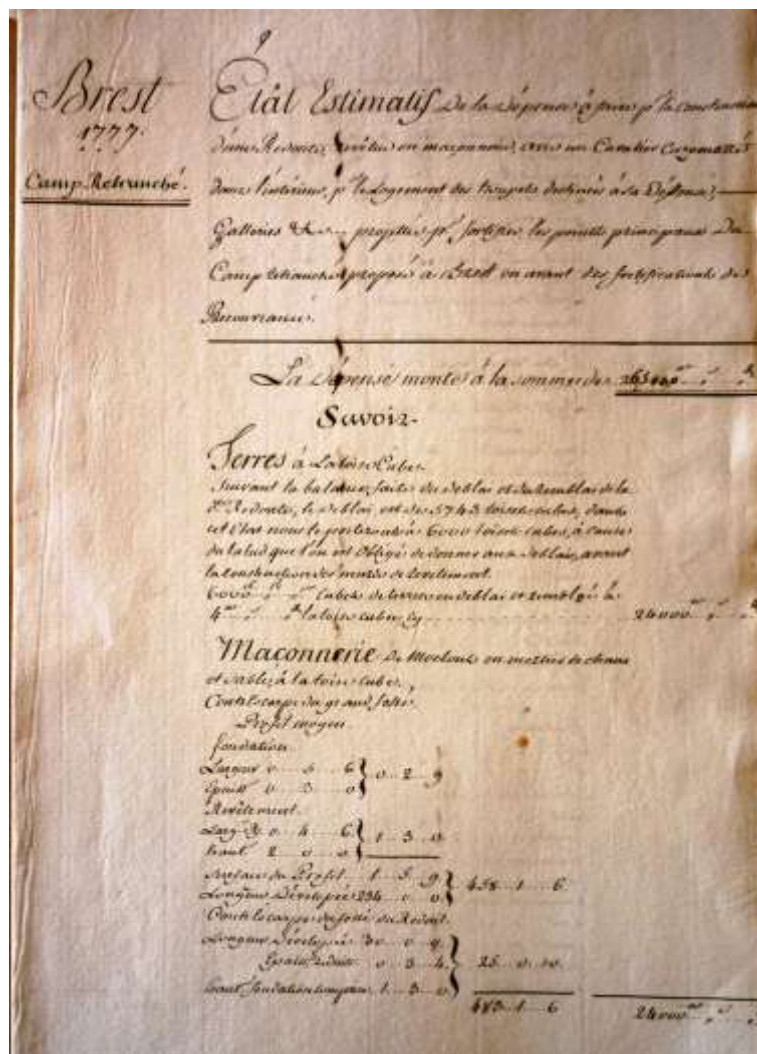 Brest
1777.
Camp Retranché.
9
Etât Estimatif De la Dépense à faire pr la construction
d'une Redoute revêtue en maçonnerie, avec un Cavalier Cazematté
dans l'intérieur, pr le Logement des troupes destinées à sa Défense,
Galleries &a projettés pr fortifier les points principaux Du
Camp retranché proposé à Brest en avant des fortifications de
Recouvrance.
La Dépense monte à la somme de
Savoir.
Terres à La toise Cube.
Suivant la balance faite du deblai et du Remblai de la
de Redoute, le deblai est de 5743 toises cubes, dans
cet Etat nous le porterons à 6000 toises cubes, à cause
du talud que l'on est Obligé de donner aux deblais, avant
la construction des murs de revetement.
6000 Cubes de terres en deblai et remblai à
4 la toise cube, cy 24000
Maçonnerie De Moelons en mortier de chaux
et sable, à la toise cube.
Contrescarpe du grand fossé.
Profil moyen
fondation.
Largeur 0 5 6 } 0 2 9
Epaisr 0 3 0
Revêtement.
Largr 0 4 6 } 1 3 0
haut 2 0 0
Surface du Profil 1 5 9 } 458 1 6
Longueur Dévelopée 234 0 0
Contrescarpe du fossé du Reduit.
Longueur Dévelopée 30 0 0
Epaisr réduite 0 3 4 } 25 0 0
haut, fondation comprise 1 3 0
483 1 6 24000